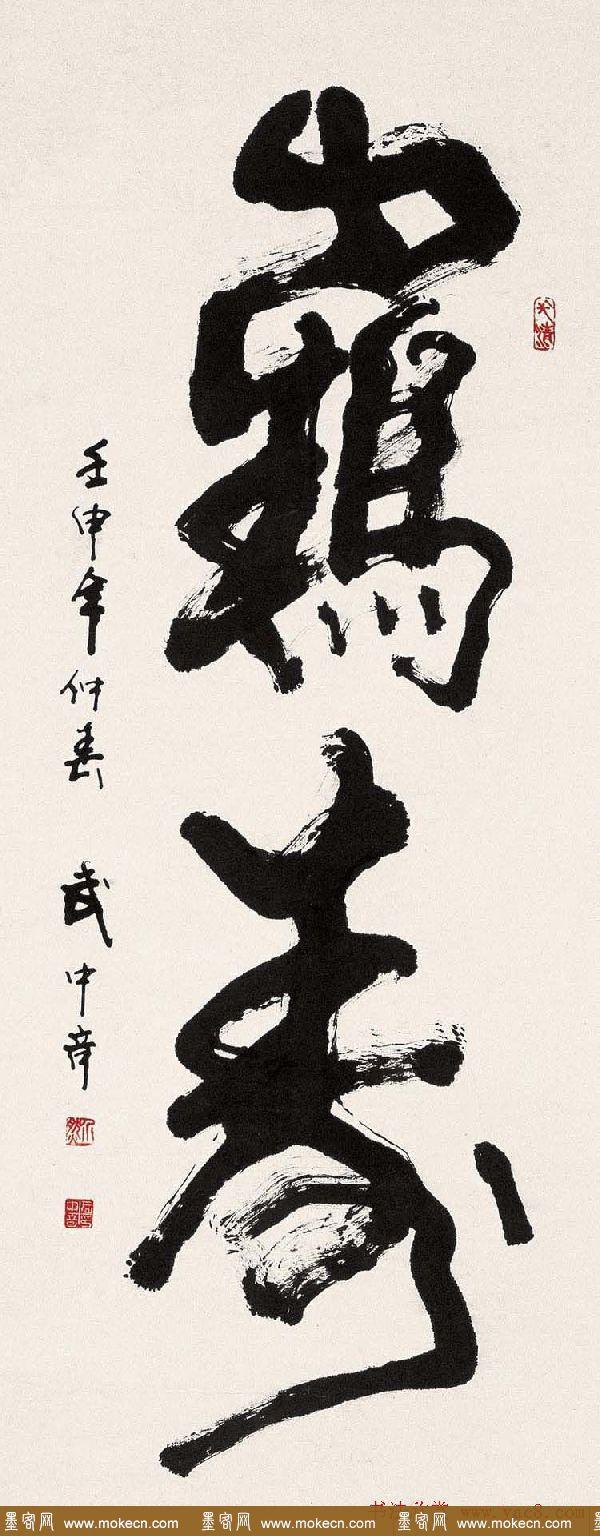 鶴壽
壬申年仲春 武中奇
墨客网 www.mokecn.com 墨客网 www.mokecn.com 墨客网 www.mokecn.com